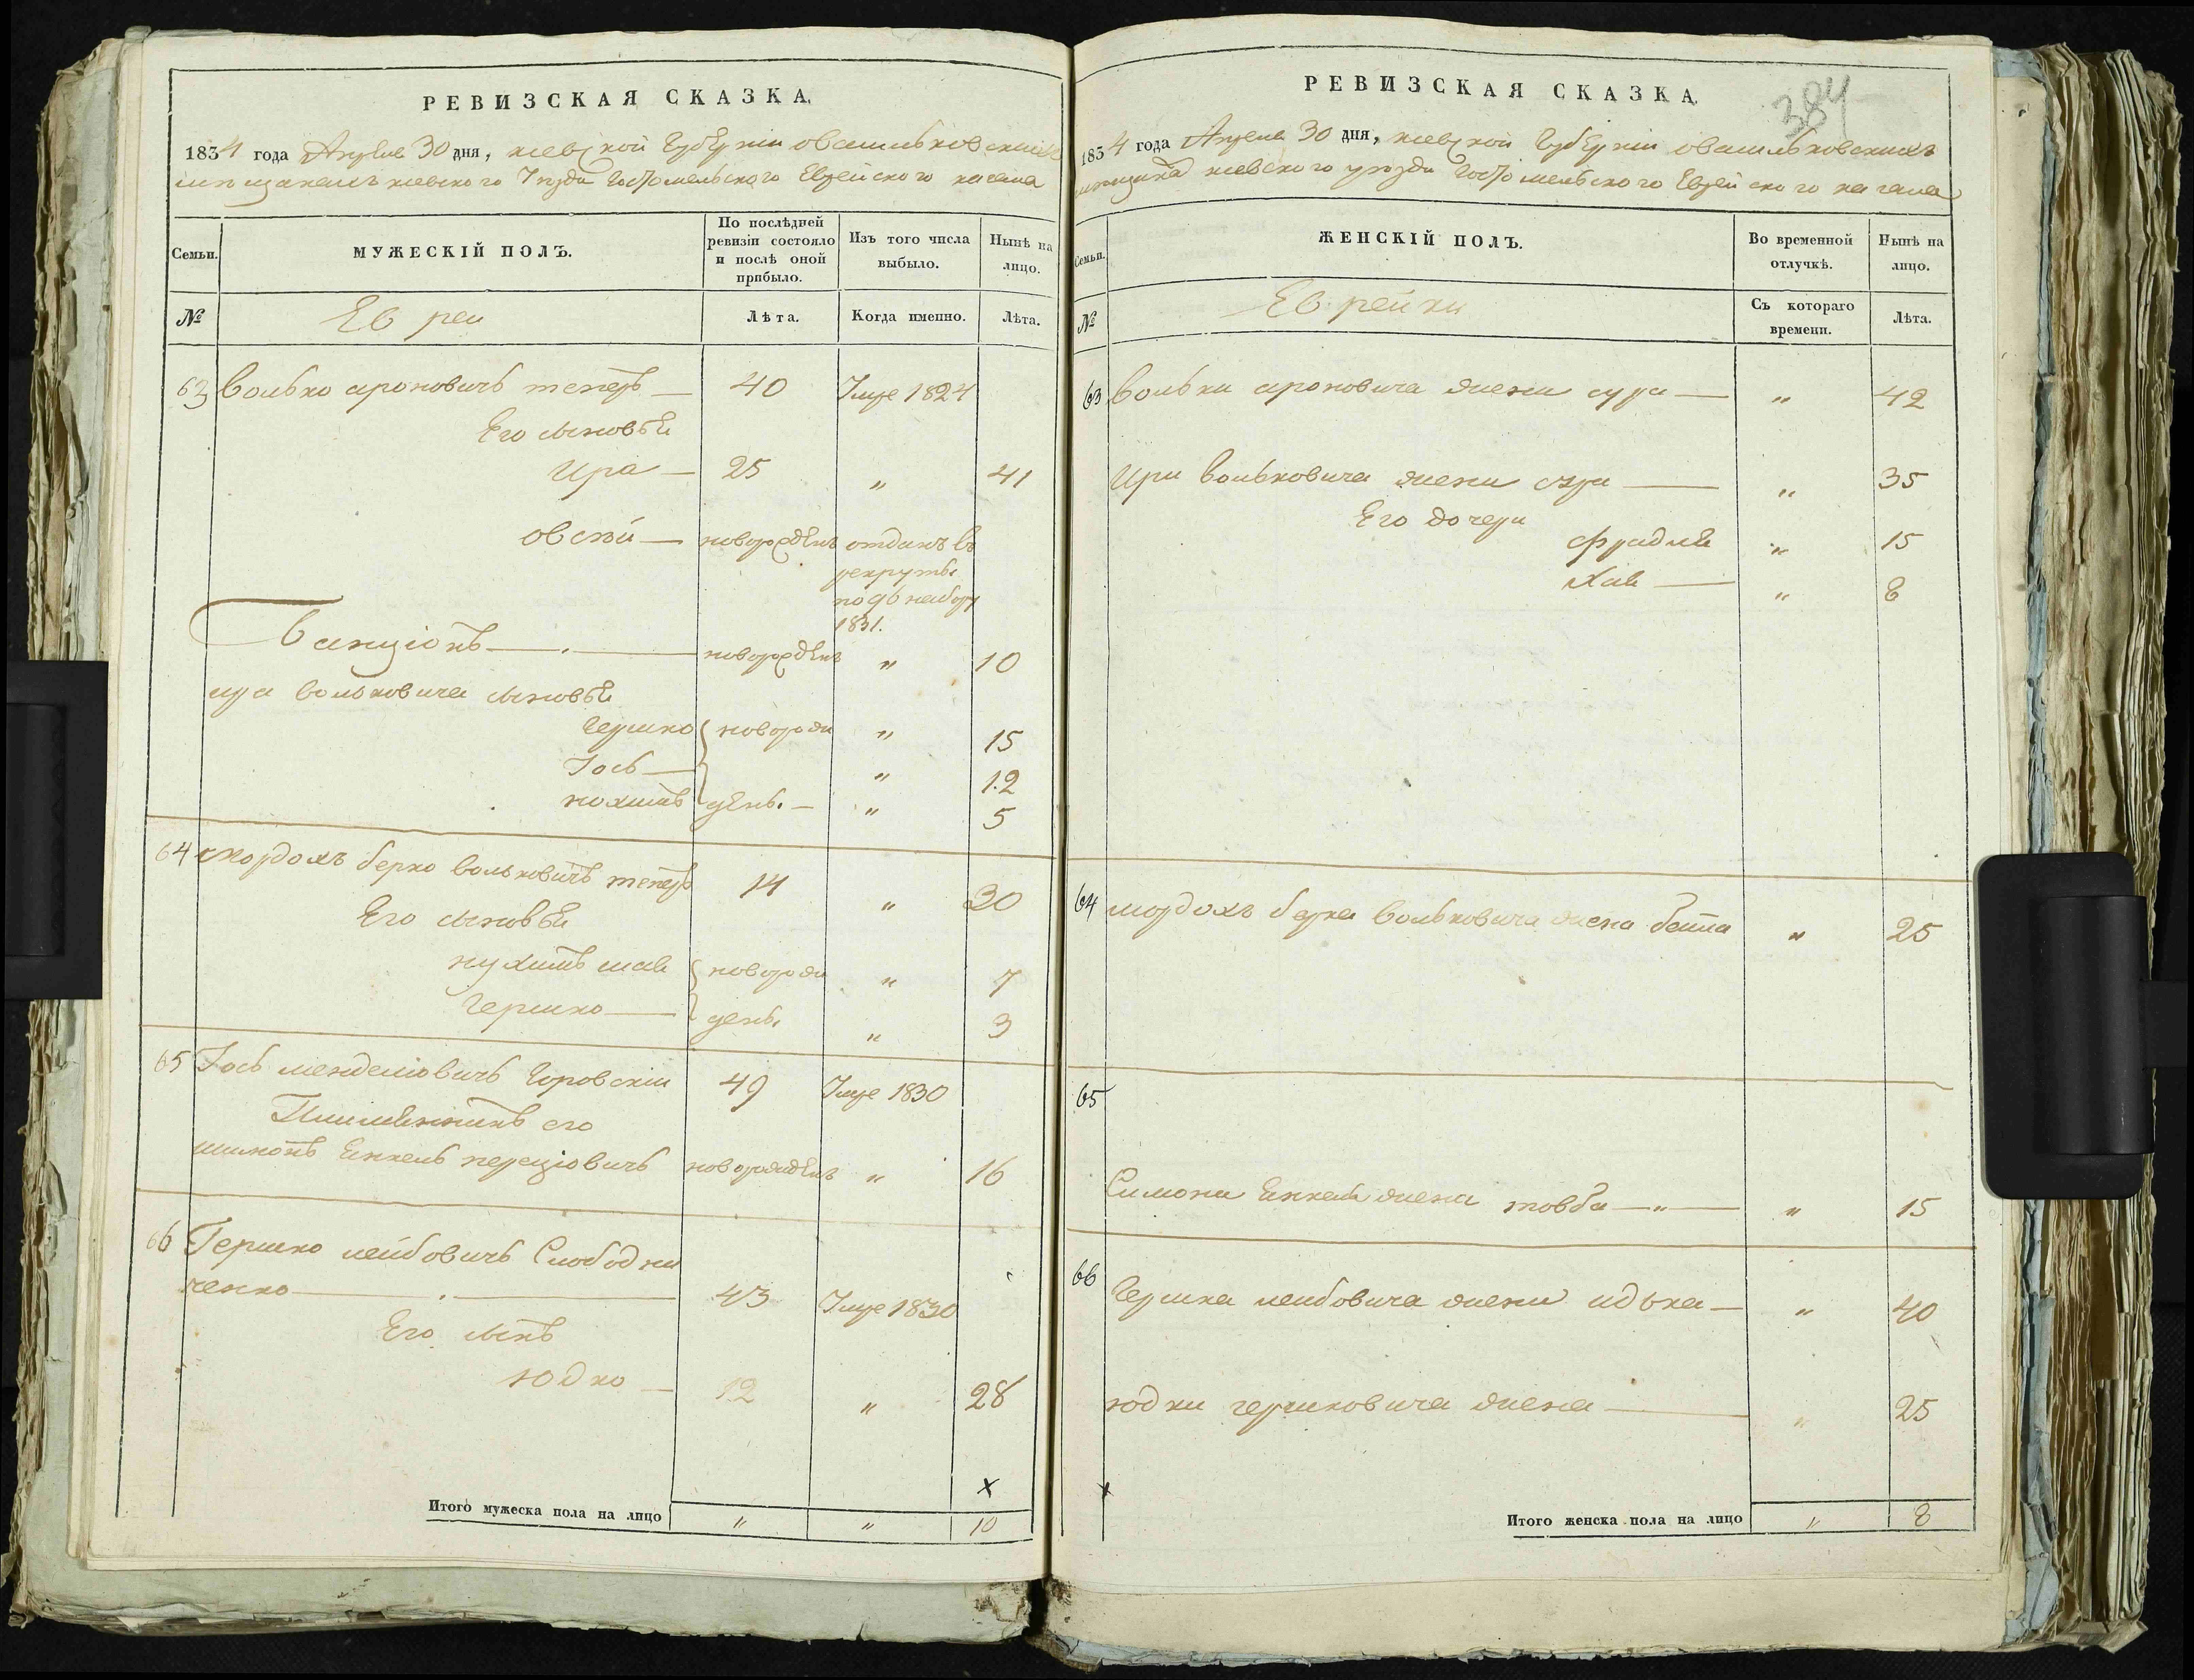 РЕВИЗСКАЯ СКАЗКА.
1834 года Апреля 30 дня, киевской Губернии о васильковских
мещанех киевского Уезда Гостомельского Еврейского кагала
Семьи.
МУЖЕСКІЙ ПОЛЪ.
По послѣдней ревизіи состояло и послѣ оной прибыло.
Изъ того числа выбыло.
Нынѣ на лицо.
№
Евреи
Лѣта.
Когда именно.
Лѣта.
63 Волько ароновичъ тетеръ — 40 Умре 1824
Его сыновья
Ира — 25 „ 41
овсѣй — новорожденъ отданъ въ
рекруты
по 96 набору
1831.
Банціонъ — новорожденъ „ 10
ира вольковича сыновья
Гершко новорож „ 15
Іось — „ 12
нохимъ денъ. — „ 5
64 мордохъ берко вольковичъ тетеръ 14 „ 30
Его сыновья
нухимъ новорож „ 7
Гершко — денъ. „ 3
65 Іось менделіовичъ Боровскіи 49 Умре 1830
Племянникъ его
шимонъ Енкель переціовичъ новорожденъ „ 16
66 Гершко лейбовичъ Слободни
ченко — 43 Умре 1830
Его сынъ
Юдко — 12 „ 28
х
Итого мужеска пола на лицо „ „ 10
РЕВИЗСКАЯ СКАЗКА.
384
1834 года Апреля 30 дня, киевской Губернии о васильковских
киевского уезда Гостомельского Еврейского кагала
Семьи.
ЖЕНСКІЙ ПОЛЪ.
Во временной отлучкѣ.
Нынѣ на лицо.
№
Еврейки
Съ котораго времени.
Лѣта.
63 Вольки ароновича жена сура — „ 42
Ири вольковича жена — „ 35
Его дочери
фрадля „ 15
Хая — „ 8
64 мордохъ берка вольковича жена бейла „ 25
65
Симона Енкеля жена товба — „ — „ 15
66
Гершка лейбовича жена идька — „ 40
юдки гершковича жена — „ 25
х
Итого женска пола на лицо „ 8